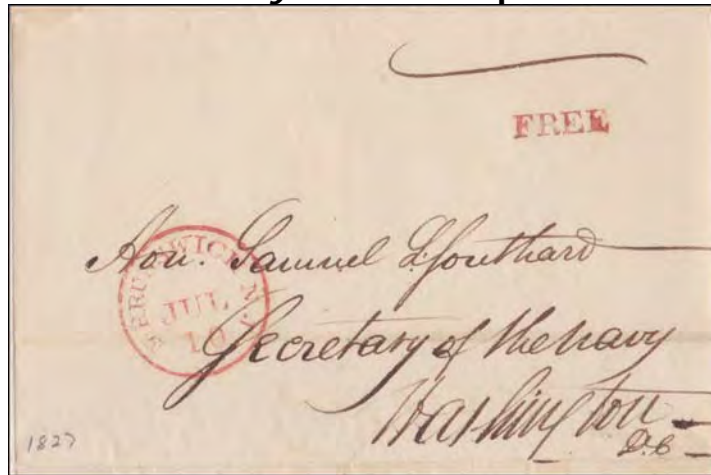 FREE
N. BRUNSWICK N.J.
JUL
10
Hon. Samuel L. Southard
Secretary of the navy
Washington
D.C
1827